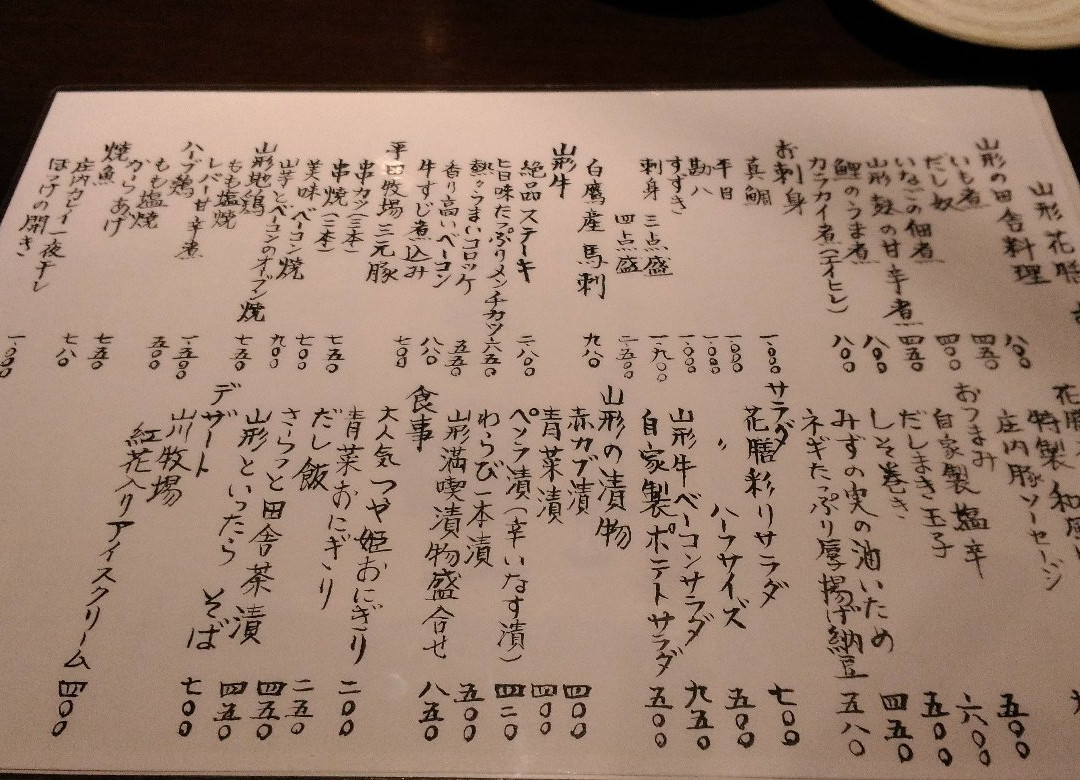 山形花膳
山形の田舎料理
いも煮 八〇〇
だし奴 四五〇
いなごの佃煮 四〇〇
山形麩の甘辛煮 四五〇
鯉のうま煮 八〇〇
カラカイ煮(エイヒレ) 八〇〇
お刺身
真鯛 一、〇〇〇
平目 一、〇〇〇
勘八 一、〇〇〇
すずき 一、〇〇〇
刺身 三点盛 一、九〇〇
四点盛 二、五〇〇
白鷹産 馬刺 九八〇
山形牛
絶品ステーキ 二、八〇〇
旨味たっぷりメンチカツ 六五〇
熱々うまいコロッケ 五五〇
香り高いベーコン 八八〇
牛すじ煮込み 七〇〇
平田牧場三元豚
串カツ(三本) 七五〇
串焼(二本) 七〇〇
美味ベーコン焼 九〇〇
山芋とベーコンのオーブン焼 七五〇
山形地鶏
もも塩焼 一、五〇〇
レバー甘辛煮 五〇〇
ハーブ鶏
もも塩焼 七五〇
からあげ 七八〇
焼魚
庄内カレイ一夜干し 一、〇〇〇
ほっけの開き
特製 和風
庄内豚ソーセージ
おつまみ
自家製塩辛 五〇〇
だしまき玉子 六〇〇
しそ巻き 五〇〇
みずの実の油いため 四五〇
ネギたっぷり厚揚げ納豆 五八〇
サラダ
花膳彩りサラダ 七〇〇
〃 ハーフサイズ 五〇〇
山形牛ベーコンサラダ 九五〇
自家製ポテトサラダ 五〇〇
山形の漬物
赤カブ漬 四〇〇
青菜漬 四〇〇
ペソラ漬(辛いなす漬) 四二〇
わらび一本漬 五〇〇
山形満喫漬物盛合せ 八五〇
食事
大人気つや姫おにぎり 二〇〇
青菜おにぎり 二五〇
だし飯 四五〇
さらっと田舎茶漬 四五〇
山形といったら そば 七〇〇
デザート
山川牧場
紅花入りアイスクリーム 四〇〇